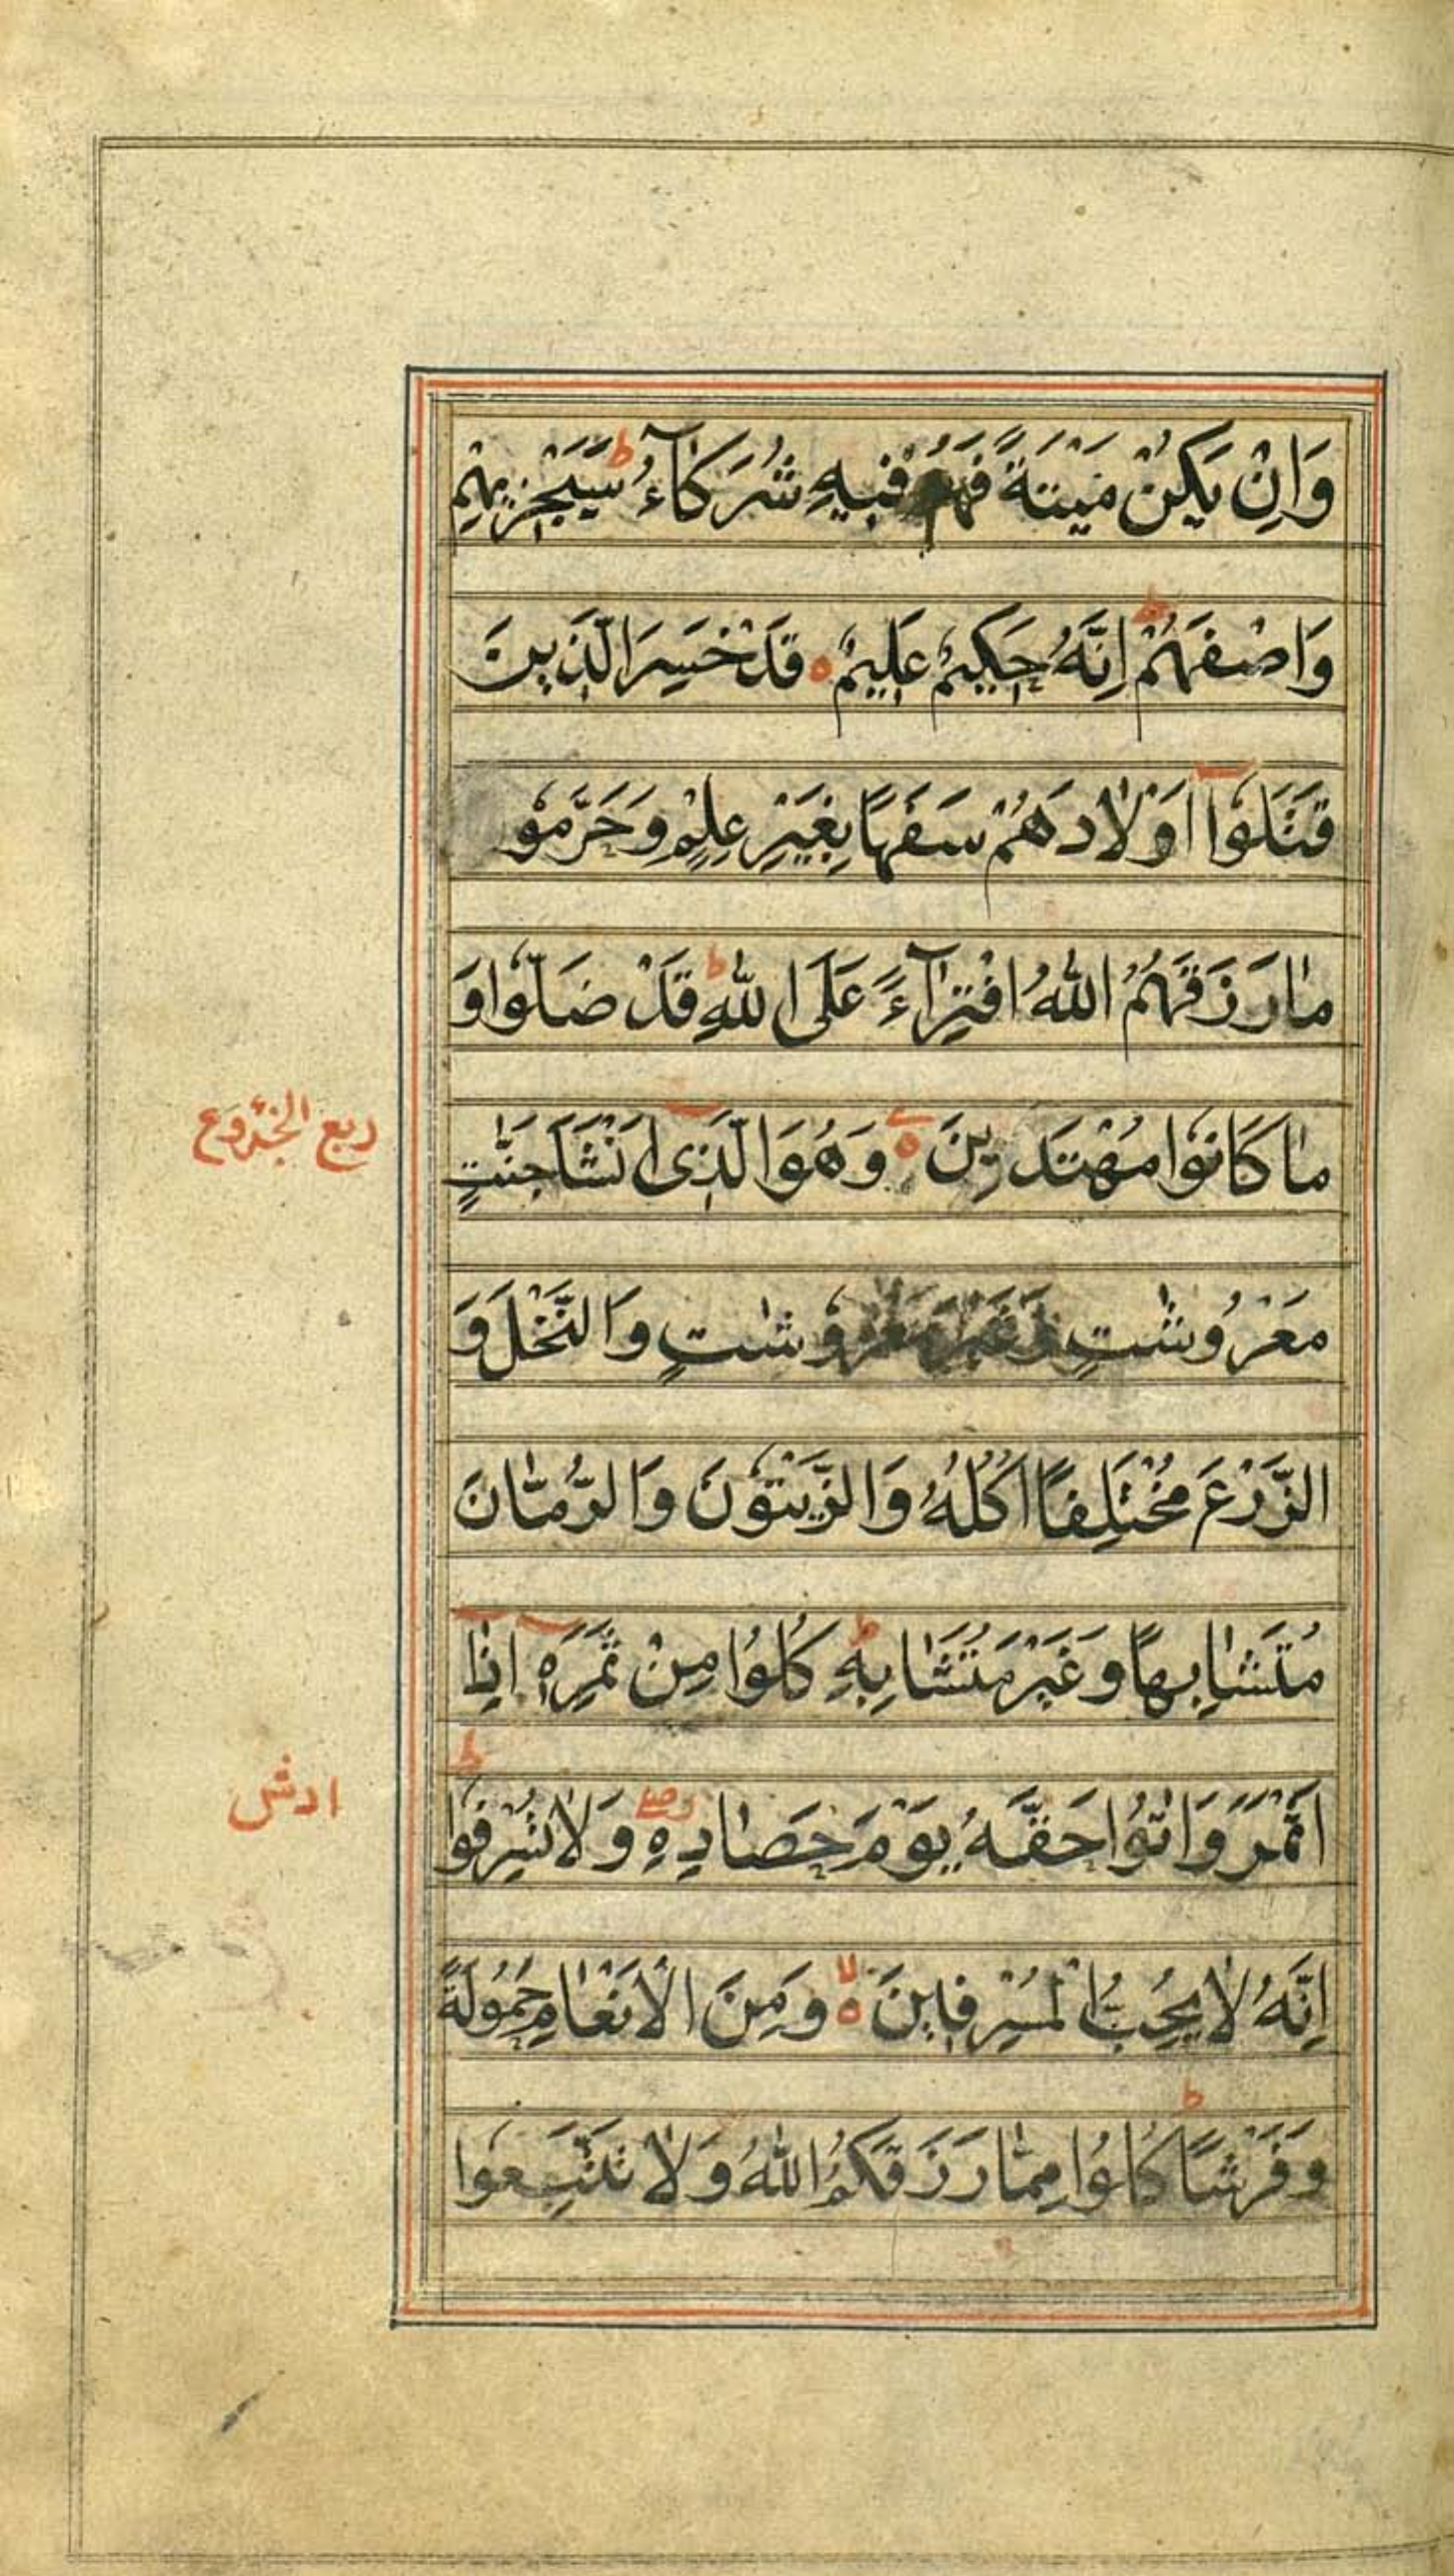 وَاِنْ يَكُنْ مَيْتَةً فَهُمْ فِيهِ شُرَكَآءُ ط سَيَجْزِيهِمْ
وَاصْفَهُمْ ط اِنَّهُ حَكِيمٌ عَلِيمٌ ه قَدْ خَسِرَ الَّذِينَ
قَتَلُوٓا اَوْلَادَهُمْ سَفَهًا بِغَيْرِ عِلْمٍ وَحَرَّمُو
مَا رَزَقَهُمُ اللّٰهُ افْتِرَآءً عَلَى اللّٰهِ ط قَدْ ضَلُّوا وَ
مَا كَانُوا مُهْتَدِينَ ه وَهُوَ الَّذِى اَنْشَاَ جَنّٰتٍ
ربع الجزوع
مَعْرُوشٰتٍ وَغَيْرَ مَعْرُوشٰتٍ وَالنَّخْلَ وَ
الزَّرْعَ مُخْتَلِفًا اُكُلُهُ وَالزَّيْتُونَ وَالرُّمَّانَ
مُتَشَابِهًا وَغَيْرَ مُتَشَابِهٍ ط كُلُوا مِنْ ثَمَرِهٖٓ اِذَآ
اَثْمَرَ وَاٰتُوا حَقَّهُ يَوْمَ حَصَادِهِ وَلَا تُسْرِفُوا ط
ادش
اِنَّهُ لَا يُحِبُّ الْمُسْرِفِينَ لا ه وَمِنَ الْاَنْعَامِ حَمُولَةً
وَفَرْشًا ط كُلُوا مِمَّا رَزَقَكُمُ اللّٰهُ وَلَا تَتَّبِعُوا